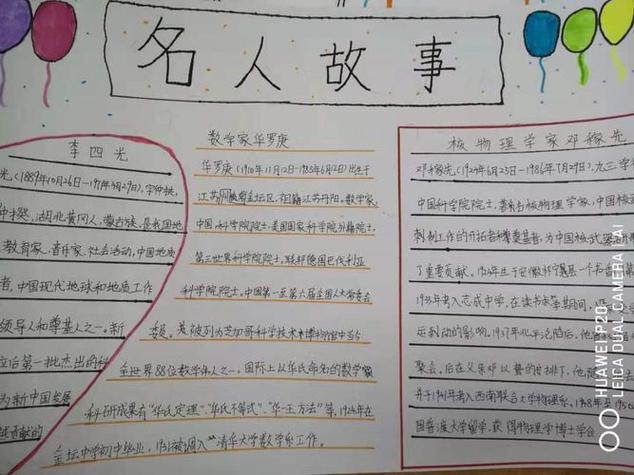 名人故事
李四光
光,(1889年10月26日—1971年4月29日),字仲拱,
仲揆,湖北黄冈人,蒙古族,是我国地
教育家、音乐家、社会活动,中国地质
者,中国现代地球和地质工作
领导人和尊基人之一。新
立后第一批杰出的科
为新中国发展
贡献的
数学家华罗庚
华罗庚(1910年11月12日-1985年6月12日)出生于
江苏金坛区,祖籍江苏丹阳,数学家,
中国科学院院士,美国国家科学院外籍院士,
第三世界科学院院士,联邦德国巴伐利亚
科学院院士。中国第一至第六届全国人大常委会
委员。被列为芝加哥科学技术博物馆中当今
全世界88位数学伟人之一。国际上以华氏命名的数学
科研成果有"华氏定理"、"华氏不等式"、"华—王方法"等。1924年在
金坛中学初中毕业,1931被调入清华大学数学系工作。
核物理学家邓稼先
邓稼先,(1924年6月25日-1986年7月29日),九三学
中国科学院院士,著名核物理学家,中国核
制工作的开拓者和奠基者,为中国核武
了重要贡献。1924年出于安徽怀宁县一个书香
1935年考入志成中学,在读书求学期间,
运动的影响。1937年北平沦陷后,他
聚会。后在父亲的安排下,他
并于1941年考入西南联合大学物理系。1948年至1950
国普渡大学留学,获得物理学博士学位
HUAWEI P20
LEICA DUAL CAMERA | AI